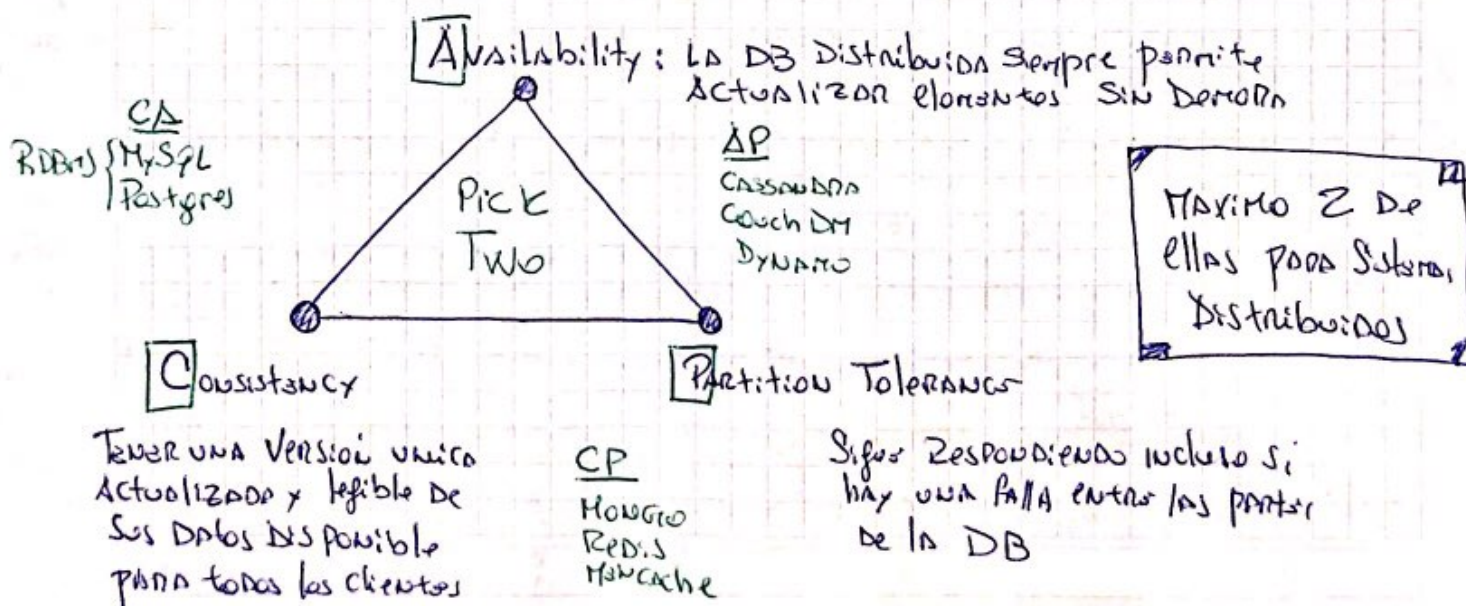 Availability: La DB Distribuida siempre permite
Actualizar elementos sin demora
CA
RDBMS { MySQL
Postgres
Pick
Two
AP
Cassandra
Couch DM
Dynamo
Maximo 2 de
ellas para Sistemas
Distribuidos
Consistency
Partition Tolerance
Tener una Versión unica
Actualizada y legible de
sus Datos Disponible
para todos los clientes
CP
Mongo
Redis
Memcache
Sigue Respondiendo incluso si
hay una falla entre las partes
de la DB